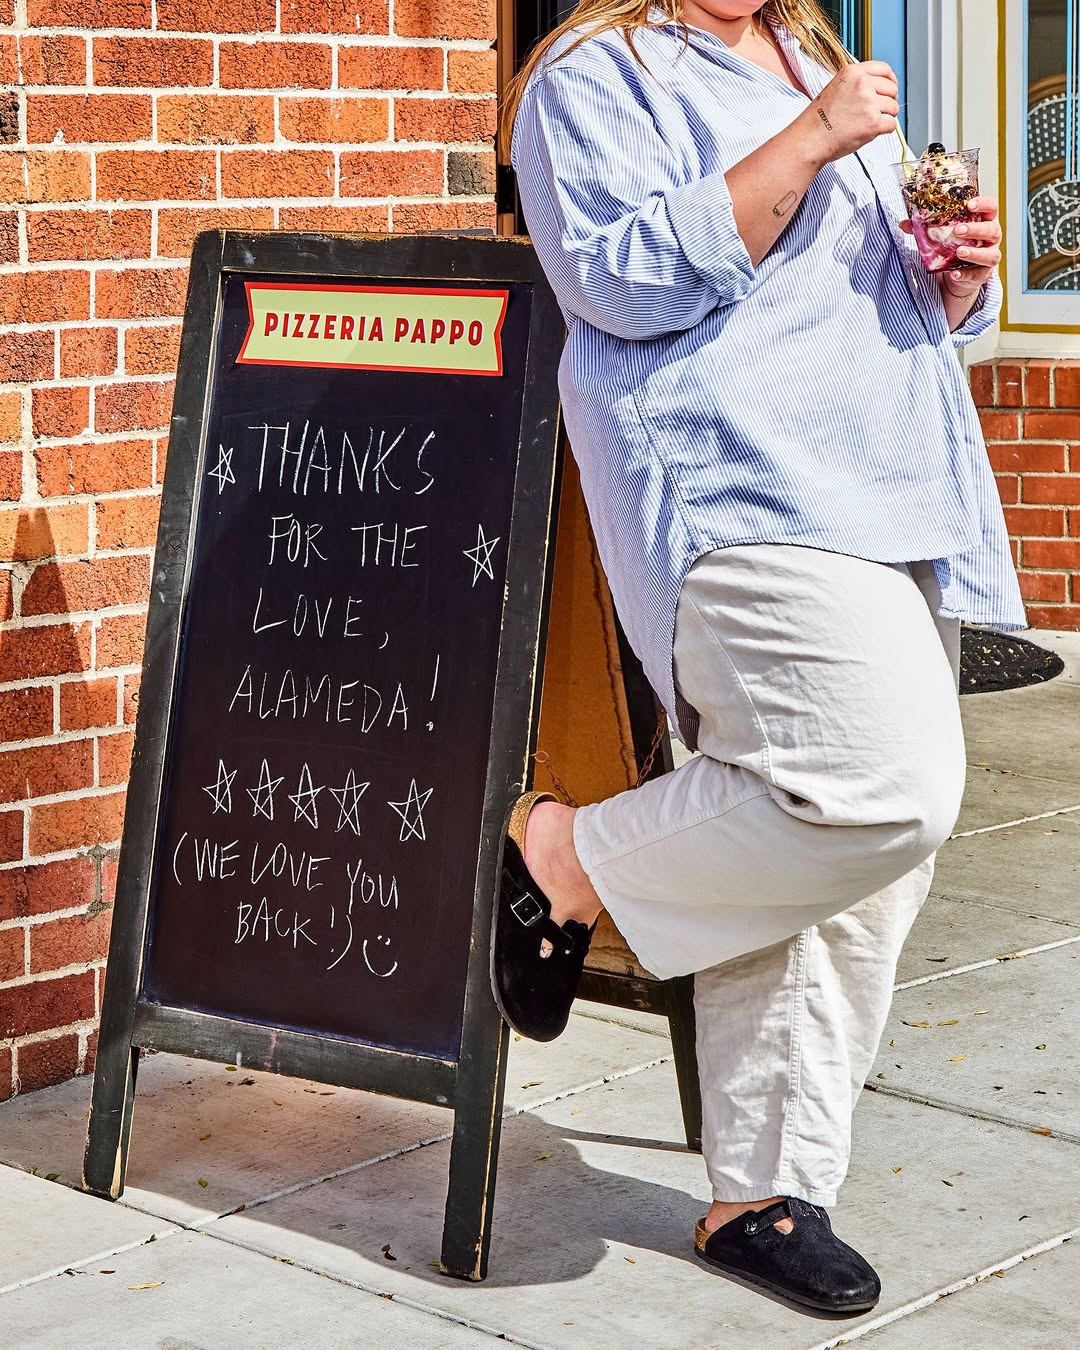 PIZZERIA PAPPO
THANKS
FOR THE
LOVE,
ALAMEDA!
(WE LOVE YOU
BACK!)